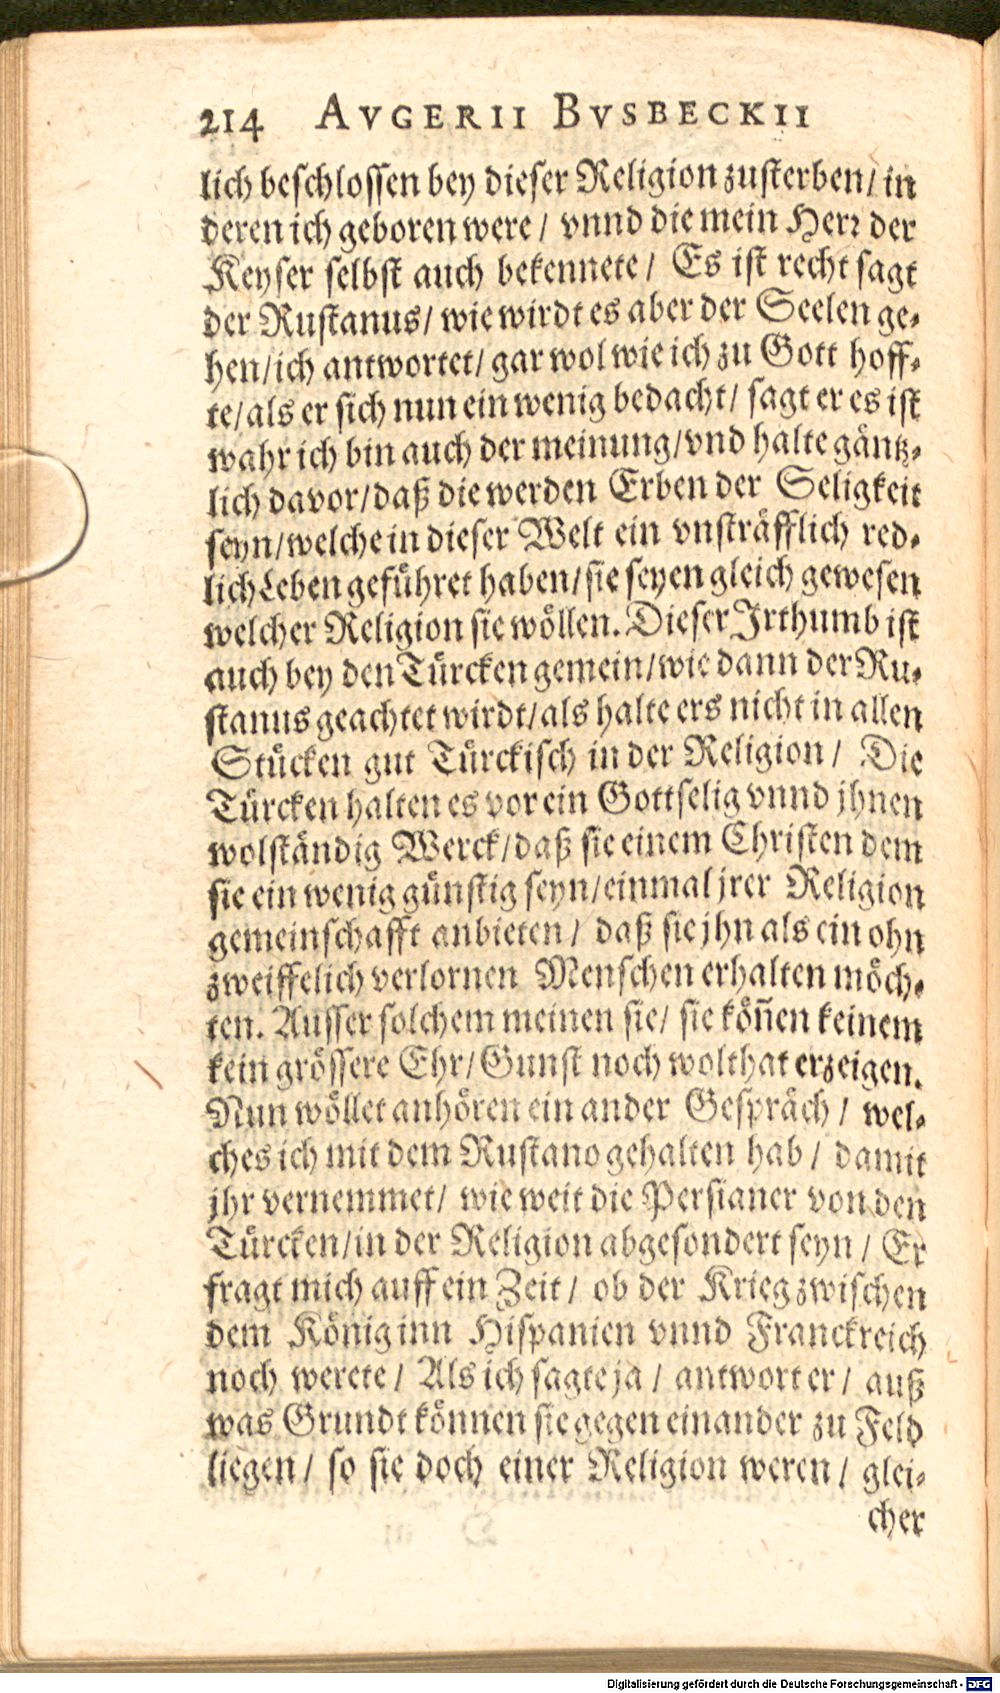 214 AVGERII BVSBECKII
lich beschlossen bey dieser Religion zusterben/ in
deren ich geboren were/ vnnd die mein Herꝛ der
Keyser selbst auch bekennete/ Es ist recht sagt
der Rustanus/ wie wirdt es aber der Seelen ge-
hen/ich antwortet/ gar wol wie ich zu Gott hoff-
te/als er sich nun ein wenig bedacht/ sagt er es ist
wahr ich bin auch der meinung/vnd halte gäntz-
lich davor/daß die werden Erben der Seligkeit
seyn/welche in dieser Welt ein vnsträfflich red-
lich Leben geführet haben/sie seyen gleich gewesen
welcher Religion sie wöllen. Dieser Irthumb ist
auch bey den Türcken gemein/wie dann der Ru-
stanus geachtet wirdt/als halte ers nicht in allen
Stücken gut Türckisch in der Religion/ Die
Türcken halten es vor ein Gottselig vnnd jhnen
wolständig Werck/daß sie einem Christen dem
sie ein wenig günstig seyn/einmal jrer Religion
gemeinschafft anbieten/ daß sie jhn als ein ohn
zweiffelich verlornen Menschen erhalten möch-
ten. Ausser solchem meinen sie/ sie köñen keinem
kein grössere Ehr/Gunst noch wolthat erzeigen.
Nun wöllet anhören ein ander Gespräch/ wel-
ches ich mit dem Rustano gehalten hab/ damit
jhr vernemmet/ wie weit die Persianer von den
Türcken/in der Religion abgesondert seyn/ Er
fragt mich auff ein Zeit/ ob der Krieg zwischen
dem König inn Hispanien vnnd Franckreich
noch werete/ Als ich sagte ja/ antwort er/ auß
was Grundt können sie gegen einander zu Feld
liegen/ so sie doch einer Religion weren/ glei-
cher
Digitalisierung gefördert durch die Deutsche Forschungsgemeinschaft - DFG